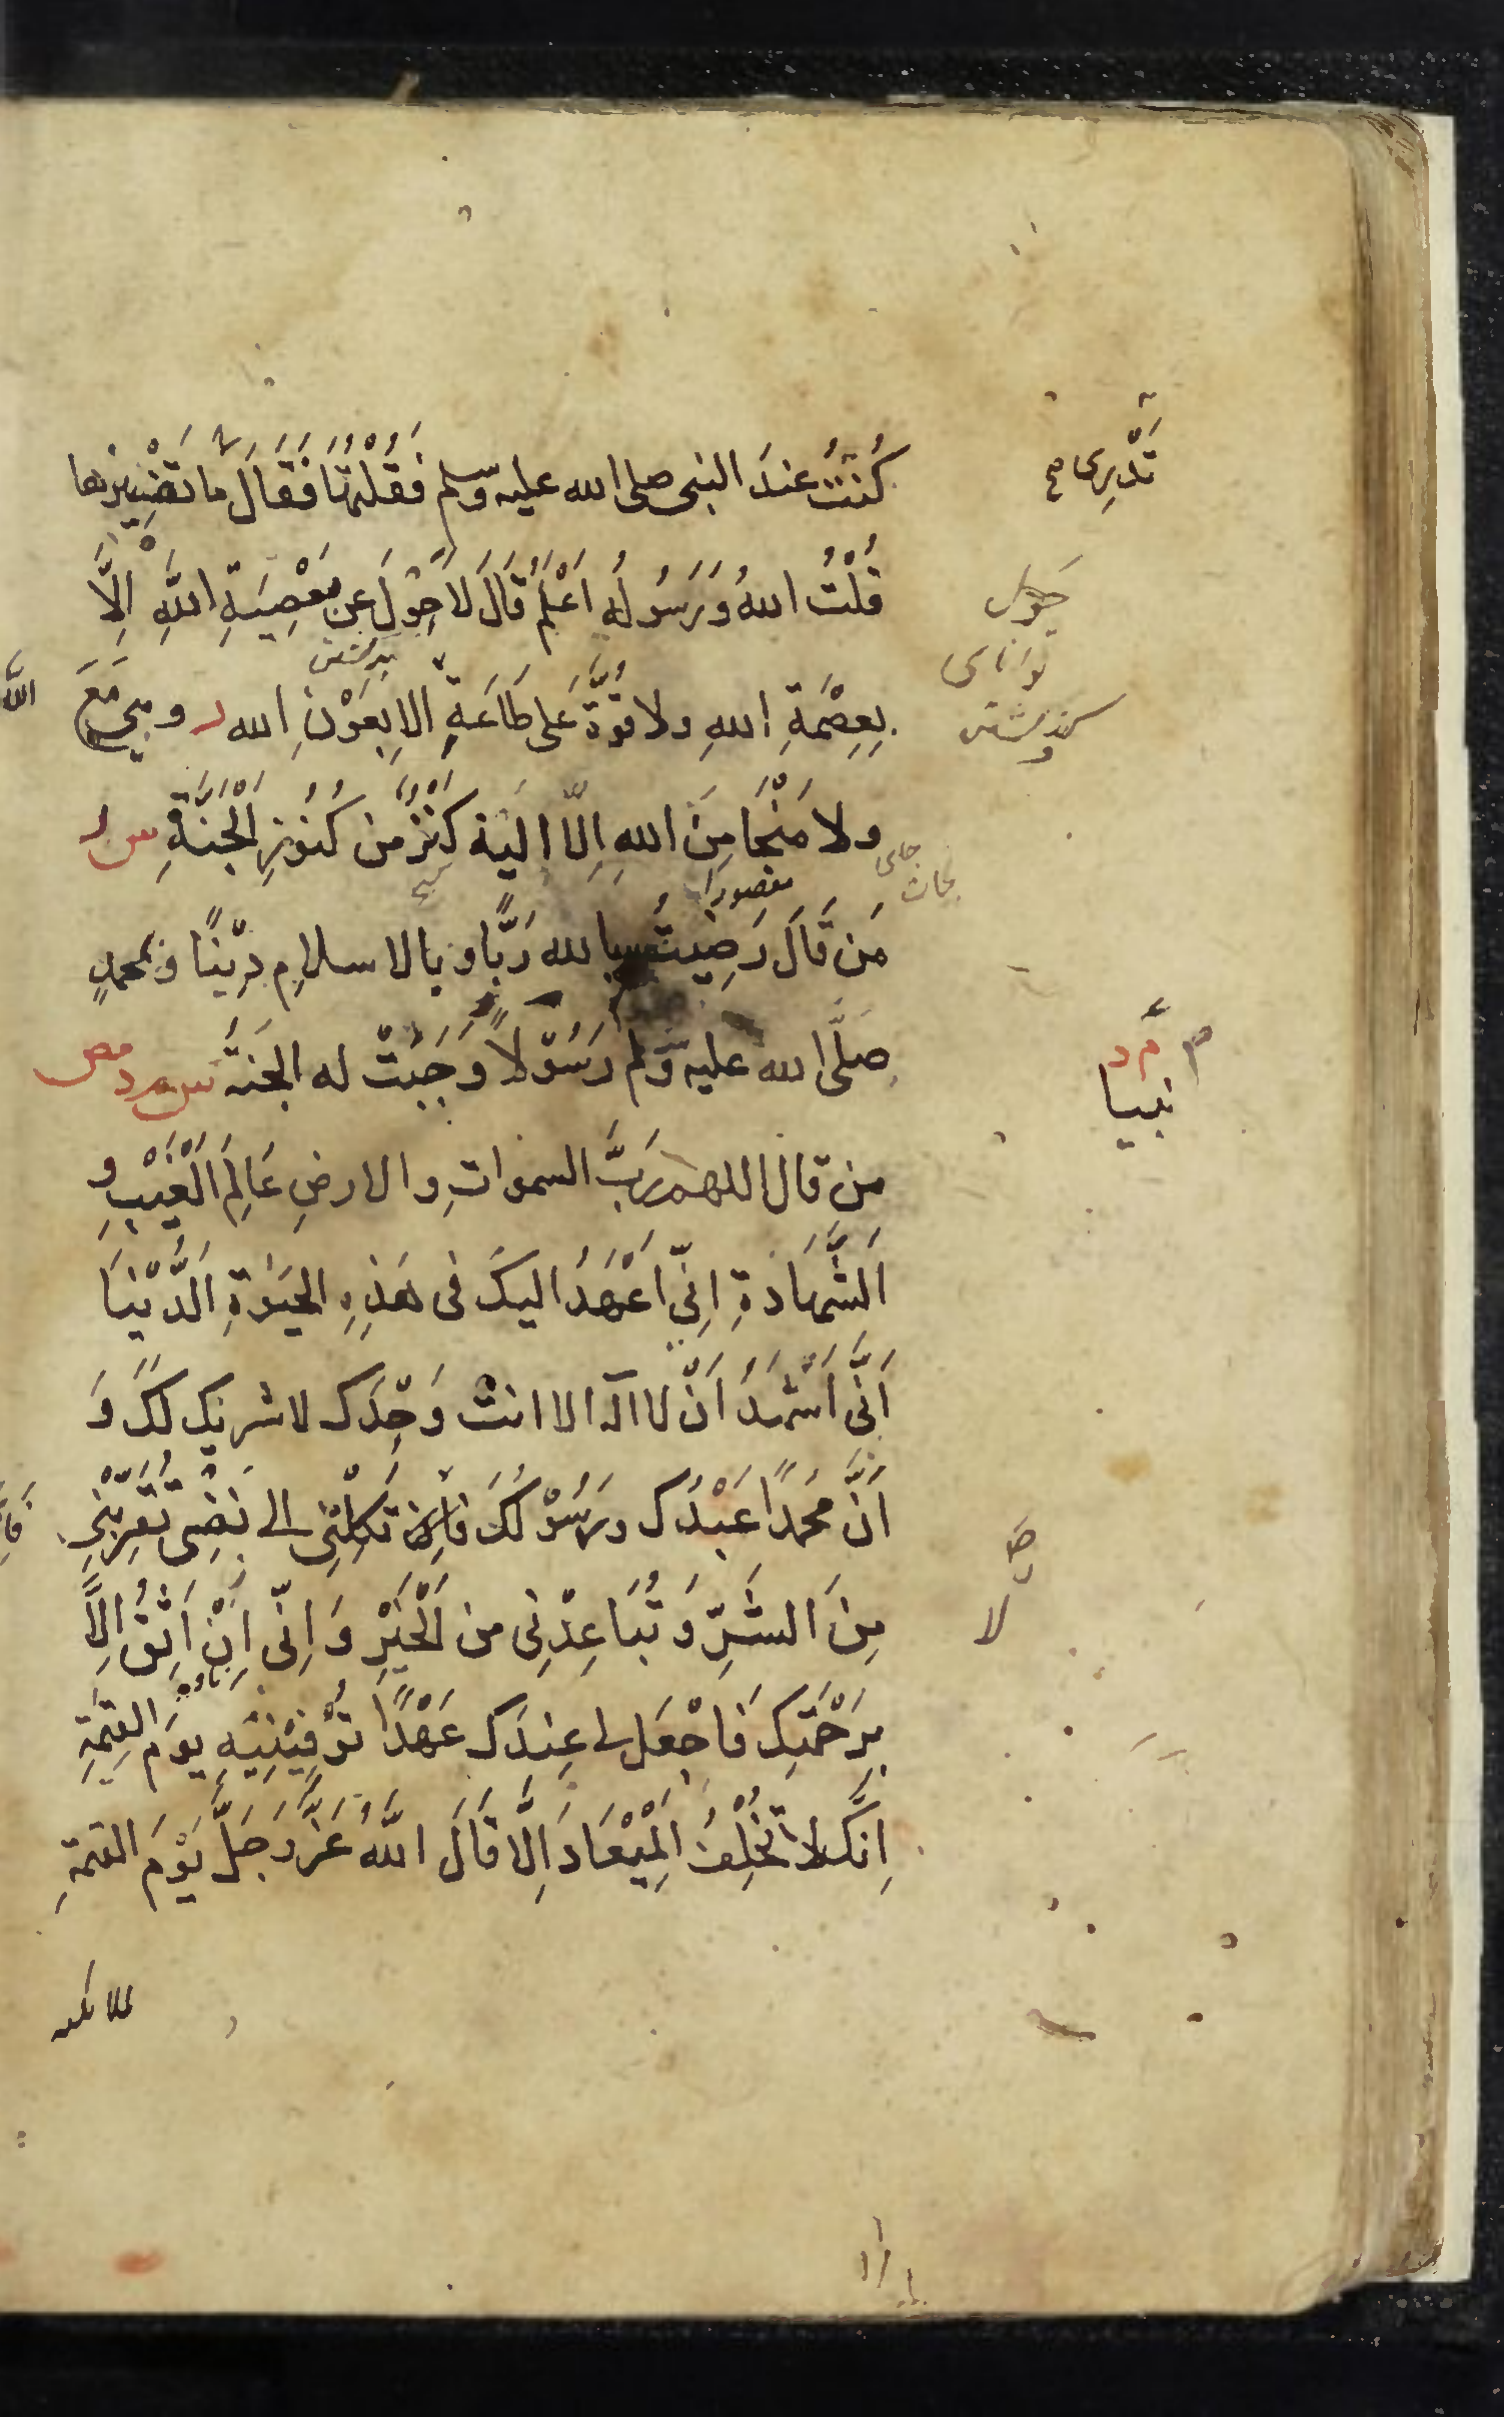 كُنْتُ عندَ النبى صلى الله عليه وسلم فَقُلْتُهَا فَقَالَ ما تفسيرها
تَدْرِى ما
قُلْتُ اللهُ وَرَسُولُهُ اَعْلَمُ قَالَ لَا حَوْلَ عن مَعْصِيَةِ اللهِ اِلَّا
حول
توانای
بِعِصْمَةِ اللهِ ولا قُوَّةَ عَلى طَاعَةٍ الا بِعَوْنِ الله ر و هى مَعَ
ولا مَنْجَا مِنَ اللهِ اِلَّا اليه كَنْزٌ من كُنُوزِ الْجَنَّةِ س ر
جای
نجات
مقصورا
مَن قَالَ رَضِيتُ بالله رَبًّا و بالاسلامِ دِينًا و بمحمدٍ
صَلَّى الله عليه وسلم رَسُوْلاً وَجَبَتْ له الجنةُ س م د مص
م م د
نبيا
مِن قال اللهم رَبَّ السموات والارضِ عَالِمَ الْغَيْبِ و
الشَّهَادَةِ اِنِّى اَعْهَدُ اليكَ فى هَذِهِ الحيوةِ الدُّنْيَا
اَنِّى اَشْهَدُ اَنْ لا اله الا انت وَحْدَكَ لا شريك لكَ وَ
اَنَّ محمدًا عَبْدُكَ ورَسُوْلُكَ فلا تَكِلْنِى الى نفسى تُقَرِّبْنِى
مِنَ الشَّرِّ وَ تُبَاعِدْنِى من الْخَيْرِ وَ اِنِّى اِنْ اَثِقُ اِلَّا
لا
بِرَحْمَتِكَ فَاجْعَل لى عِندَكَ عَهْدًا تُوَفِّينِيْهِ يومَ القيمةِ
اِنَّكَ لا تُخْلِفُ الْمِيْعَادَ اِلَّا قَالَ اللهُ عَزَّ وَجَلَّ يَوْمَ القيمةِ
لملائكته